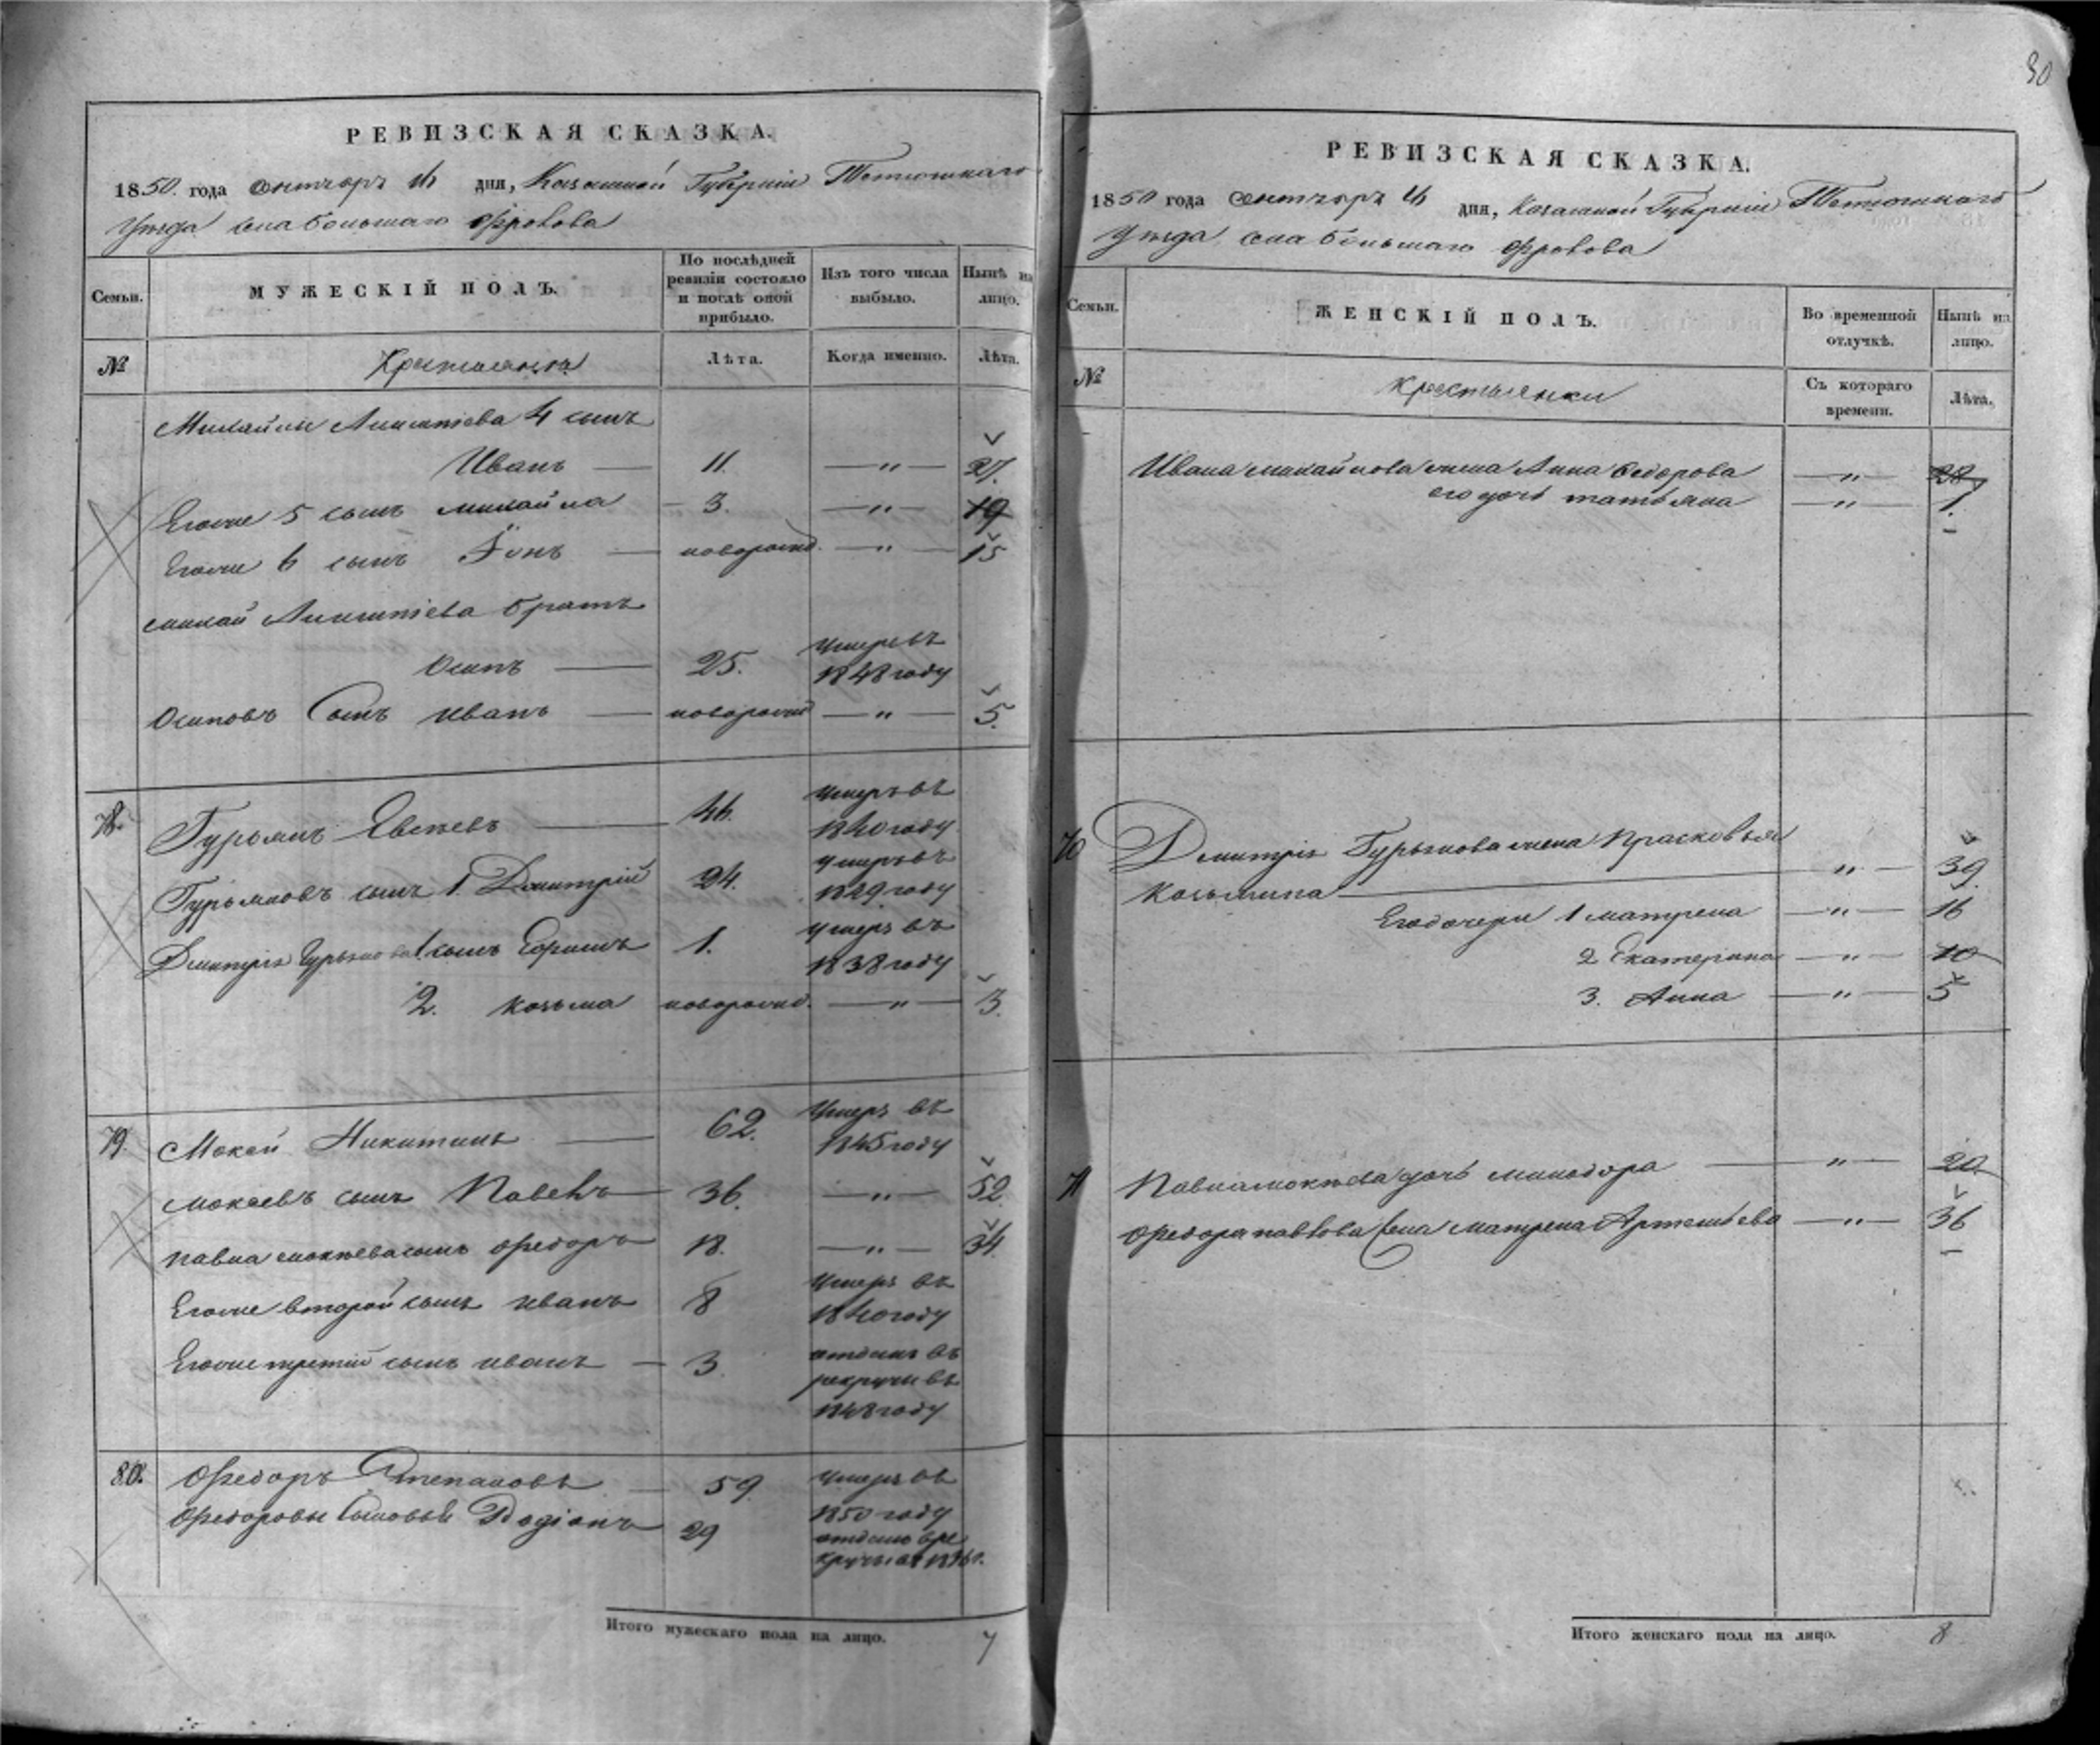 30
РЕВИЗСКАЯ СКАЗКА.
1850. года дня, Казанской Губерніи Тетюшскаго
Уѣзда села большаго Фролова
Семьи.
МУЖЕСКІЙ ПОЛЪ.
По послѣдней ревизіи состояло и послѣ оной прибыло.
Изъ того числа выбыло.
Нынѣ на лицо.
№
Крестьяне
Лѣта.
Когда именно.
Лѣта.
4 сынъ
Иванъ 11. — " — 27.
Егоже 5 сынъ михайла 3. — " — 19
Егоже 6 сынъ новорожд. — " — 15
братъ
Осипъ 25. умеръ въ
1848 году
Осиповъ Сынъ иванъ новорожд — " — 5.
78. Гурьянъ 46. умеръ въ
1840 году
Гурьяновъ сынъ 1. Дмитрій 24. умеръ въ
1849 году
Дмитрія Гурьянова 1 сынъ 1. умеръ въ
1838 году
2. козьма новорожд. — " — 3.
79. Мокей Никитинъ 62. Умеръ въ
1845 году
мокеевъ сынъ Павелъ 36. — " — 52
павла мокѣева сынъ Федоръ 18. — " — 34.
Егоже второй сынъ иванъ 8 Умеръ въ
1840 году
Егоже третій сынъ иванъ 3 отданъ въ
рекруты въ
1848 году
80. Федоръ Степановъ 59. умеръ въ
1850 году
Федоровы сыновья Родіонъ 29 отданъ вре
круты
Итого мужескаго пола на лицо. 7
РЕВИЗСКАЯ СКАЗКА.
1850 года дня, Казанской Губерніи Тетюшскаго
Уѣзда села большаго Фролова
Семьи.
ЖЕНСКІЙ ПОЛЪ.
Во временной отлучкѣ.
Нынѣ на лицо.
№
Крестьянки
Съ котораго времени.
Лѣта.
Ивана михайлова жена Анна Федорова — " — 28
его дочь татьяна — " — 1.
70 Дмитрія Гурьянова жена Прасковья
Козьмина — " — 39.
Его дочери 1 матрена — " — 16
2 Екатерина — " — 10
3. Анна — " — 5
71 Павла мокѣева дочь минодора — " — 20
Федора павлова жена матрена Артемьева — " — 36
Итого женскаго пола на лицо. 8